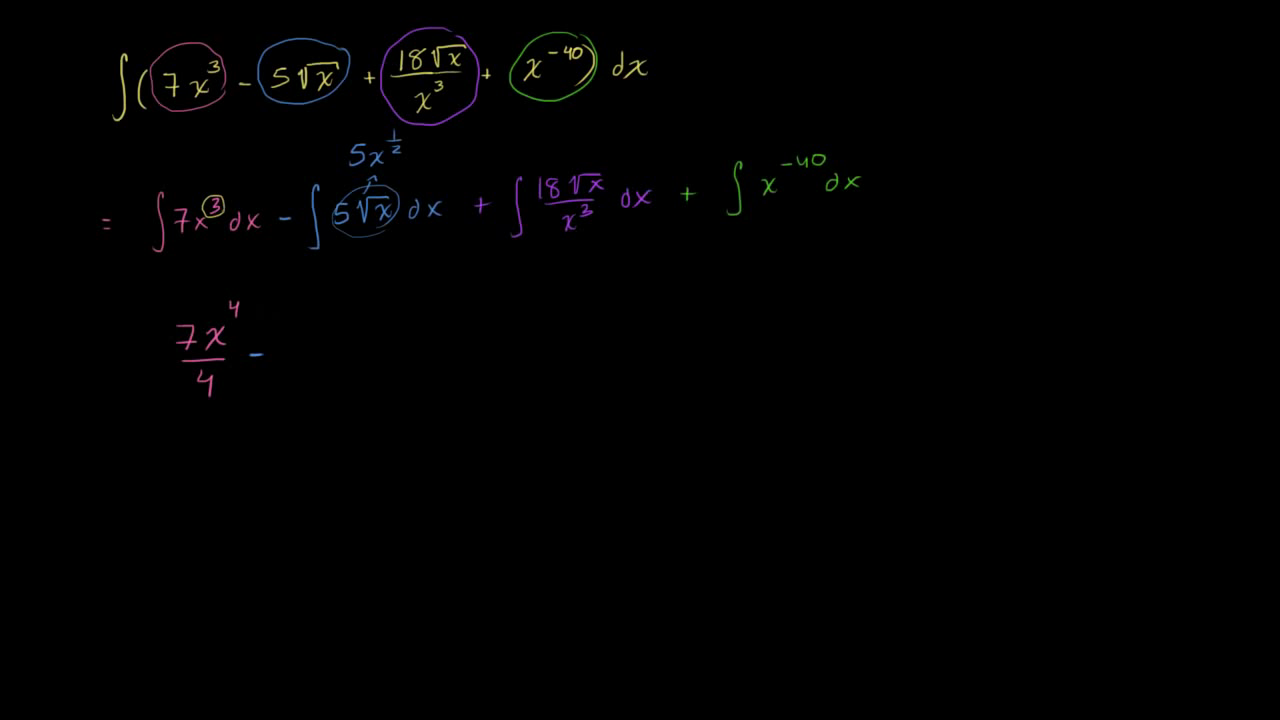 ∫(7x³ - 5√x + 18√x/x³ + x⁻⁴⁰) dx
5x^½
= ∫7x³dx - ∫5√x dx + ∫18√x/x³ dx + ∫x⁻⁴⁰dx
7x⁴/4 -